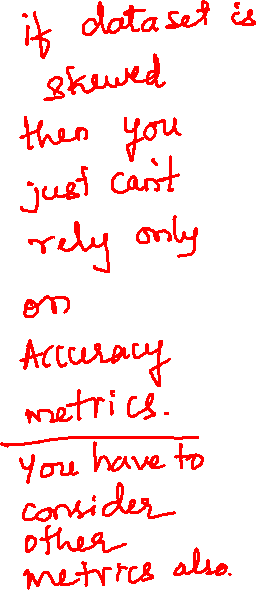 if dataset is
skewed
then you
just can't
rely only
on
Accuracy
metrics.
You have to
consider
other
metrics also.